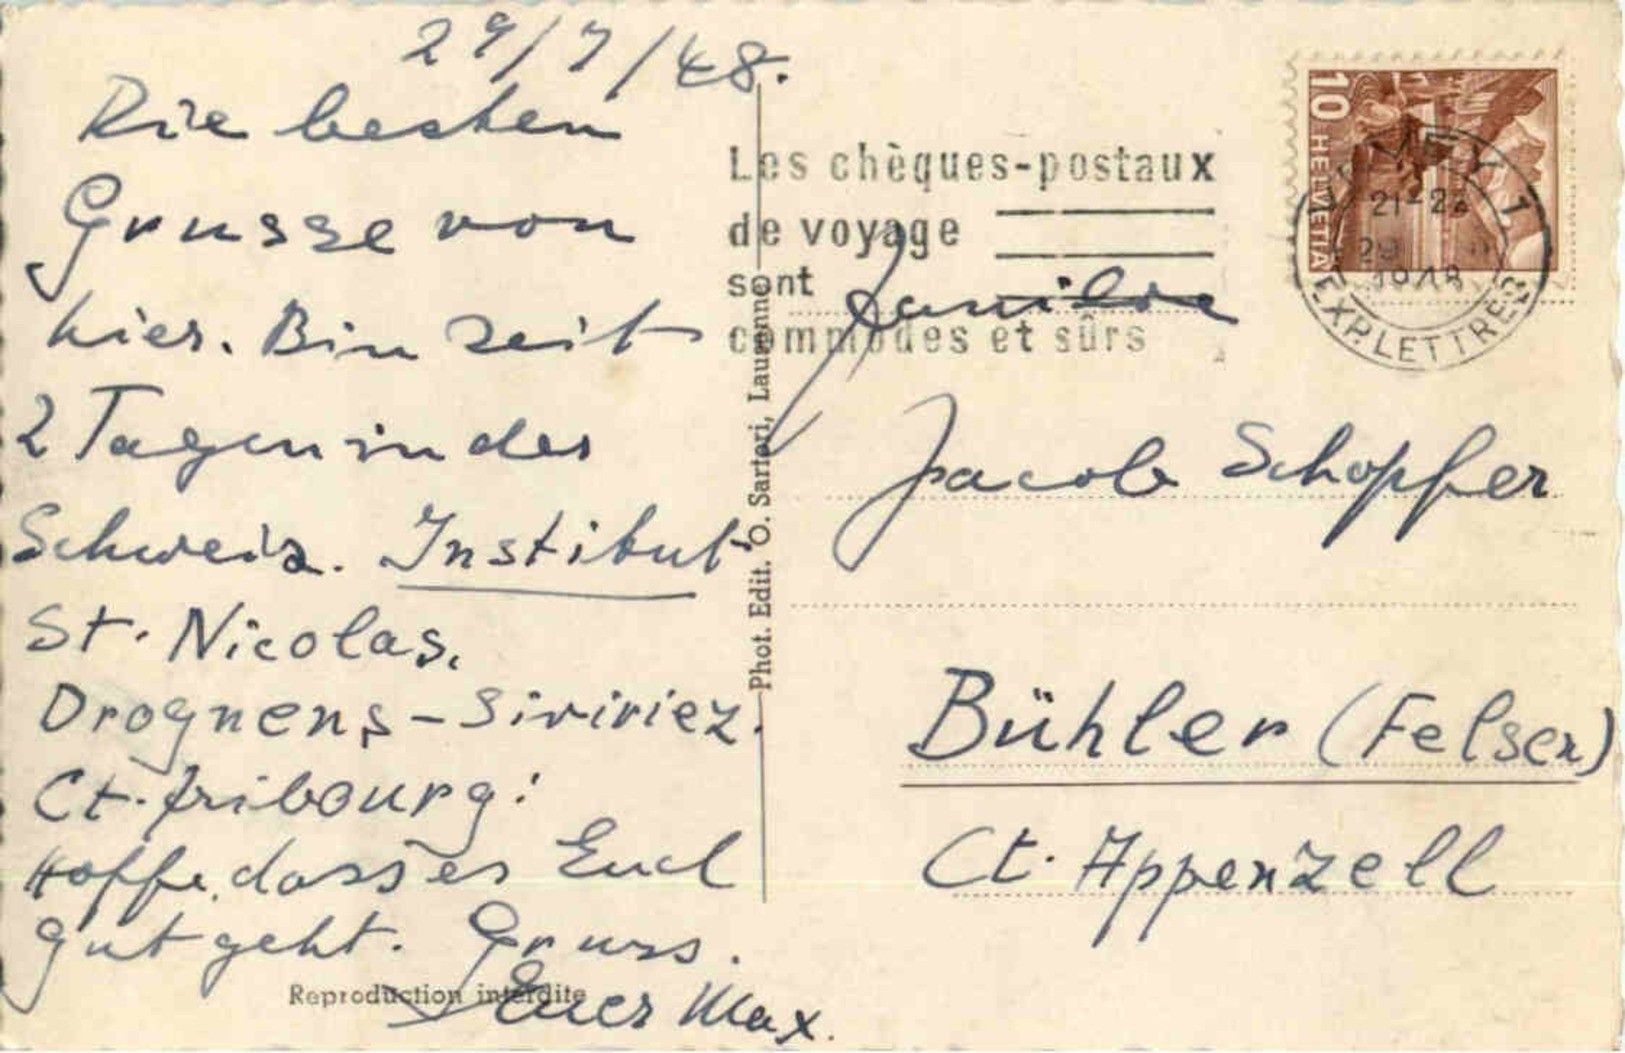 29/7/48.
Die besten
Grusse von
hier. Bin seit
2 Tagen in der
Schweiz. Institut
St. Nicolas,
Drognens - Siviriez.
Ct. Fribourg!
Hoffe, dass es Euch
gut geht. Gruss.
Euer Max.
Reproduction interdite
Phot. Edit. O. Sartori, Lausanne
Les chèques-postaux
de voyage
sont
commodes et sûrs
10 HELVETIA
VEVEY 1
21-22
29
1948
EXP. LETTRES
Familie
Jacob Schopfer
Bühler (Felsen)
Ct. Appenzell